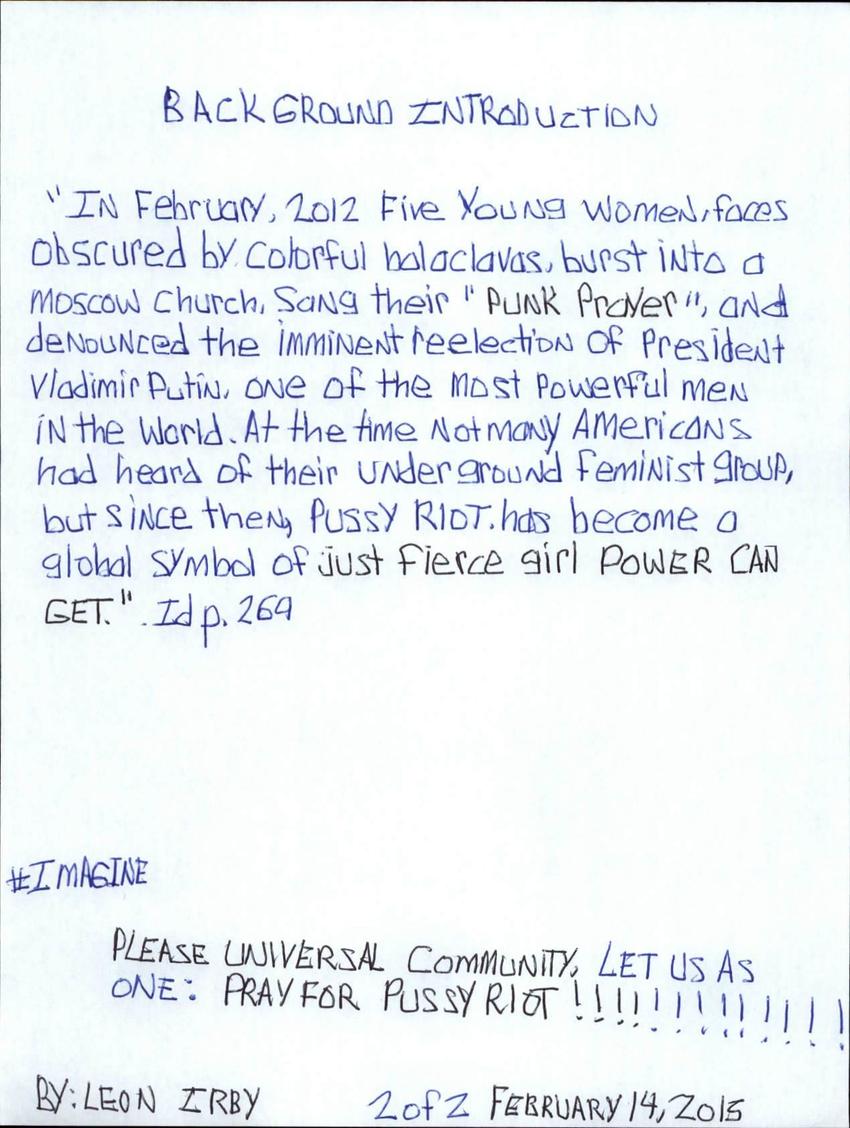 BACKGROUND INTRODUCTION
"IN February, 2012 Five Young Women, faces
obscured by colorful balaclavas, burst into a
Moscow church, Sang their "PUNK Prayer", and
denounced the imminent reelection of President
Vladimir Putin, one of the most powerful men
in the World. At the time Not many Americans
had heard of their underground feminist group,
but since then, PUSSY RIOT. has become a
global symbol of just fierce girl POWER CAN
GET.". Id p. 269
#IMAGINE
PLEASE UNIVERSAL COMMUNITY, LET US AS
ONE: PRAY FOR PUSSY RIOT !!!!!!!!!!!!!
BY: LEON IRBY 2 of 2 FEBRUARY 14, 2015